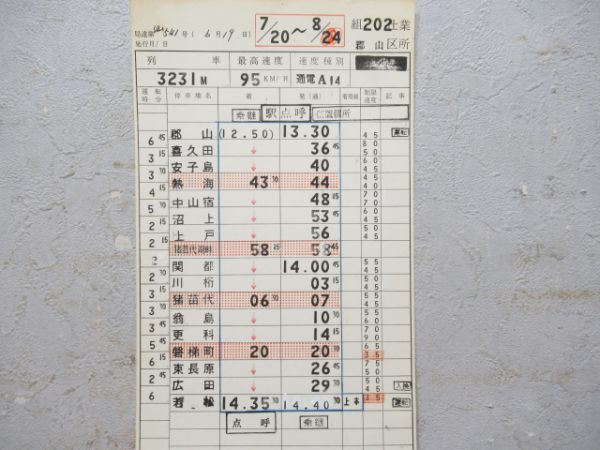 局達第 541 号 ( 6月19日)
発行月/日
7/20～8/24
組 202 仕業
郡山 区所
列車 最高速度 速度種別
3231M 95 KM/H 通電A14
運転時分 停車場名 着 発(通) 着発線 制限速度 記事
乗継 駅点呼 仁業個所
郡山 (12.50) 13.30 45 運転
6 45 喜久田 ↓ 36 45 80 50
3 15 安子島 ↓ 40 60 45
3 15 熱海 43 30 44 40 45
4 15 中山宿 ↓ 48 15 70 60
5 沼上 ↓ 53 45
2 15 上戸 ↓ 56
2 15 猪苗代湖畔 58 15 58 45
2 関都 ↓ 14.00 45 55 45
2 川桁 ↓ 03 15
3 猪苗代 06 07
3 翁島 ↓ 10
3 45 更科 ↓ 14 15
5 45 磐梯町 20 20
6 15 東長原 ↓ 26 45
2 広田 ↓ 29 入換
6 若松 14.35 14.40 上本 35 運転
点呼 乗継